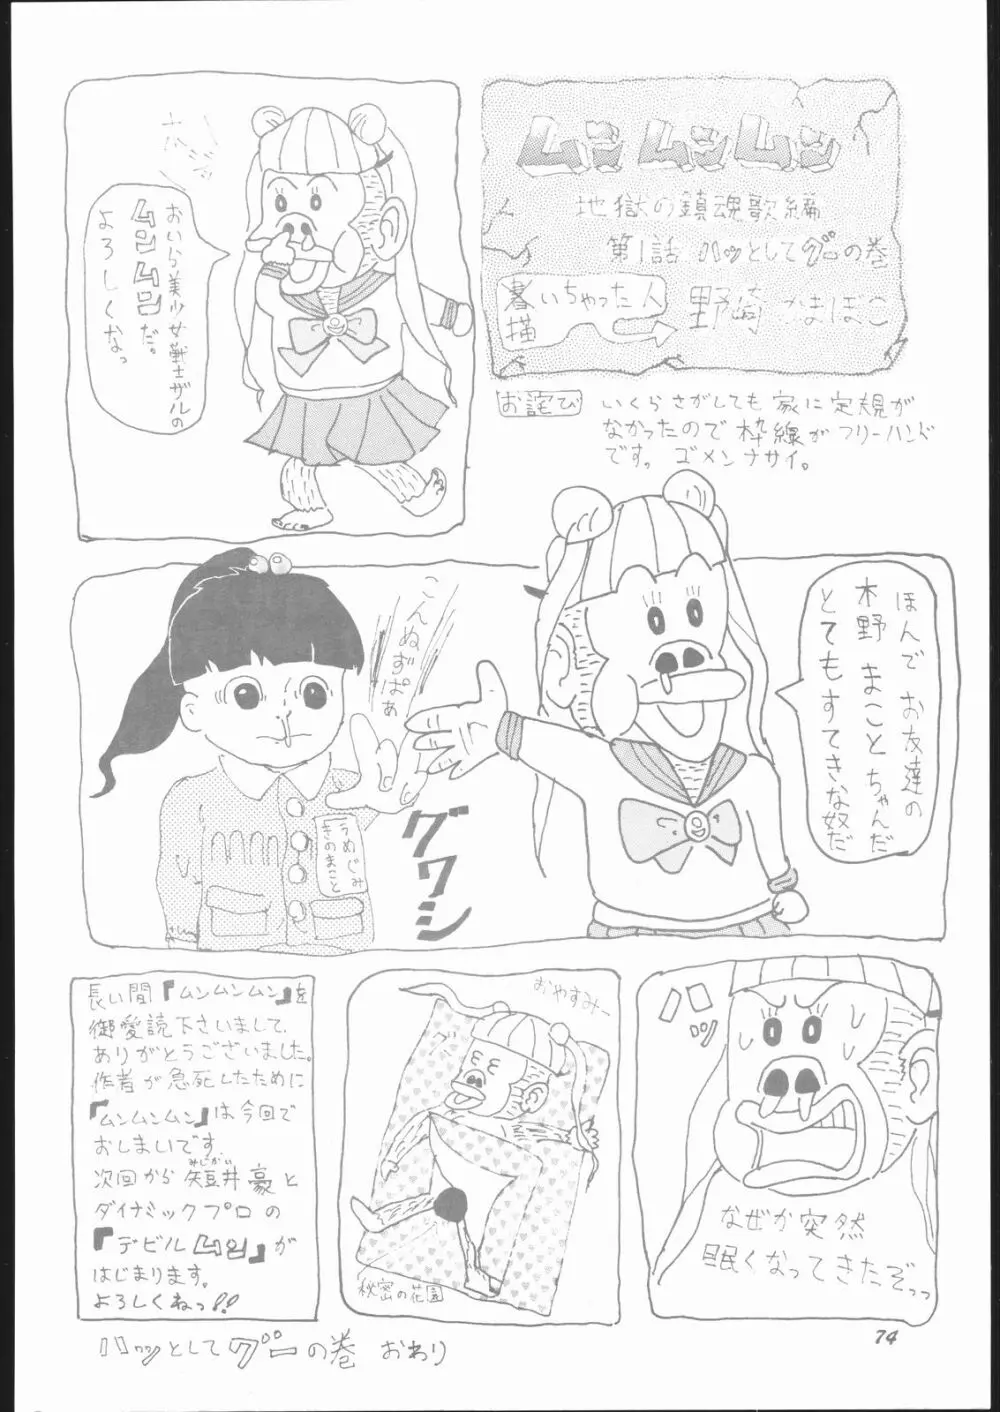 ムンムンムン
地獄の鎮魂歌編
第1話 ハッとしてグーの巻
書いちゃった人
描
野崎かまぼこ
お詫び
いくらさがしても家に定規が
なかったので枠線がフリーハンド
です。ゴメンナサイ。
おいら美少女戦士ザルの
ムンムンだ。
よろしくなっ
ほんでお友達の
木野まことちゃんだ
とてもすてきな奴だ
こんぬずぱぁ
グワシ
うめぐみ
きのまこと
ハッ
なぜか突然
眠くなってきたぞっっ
おやすみー
グー
秘密の花園
長い間『ムンムンムン』を
御愛読下さいまして、
ありがとうございました。
作者が急死したために
『ムンムンムン』は今回で
おしまいです。
次回から矢豆井豪と
みじかい
ダイナミックプロの
『デビルムン』が
はじまります。
よろしくねっ!!
ハッとしてグーの巻 おわり
74